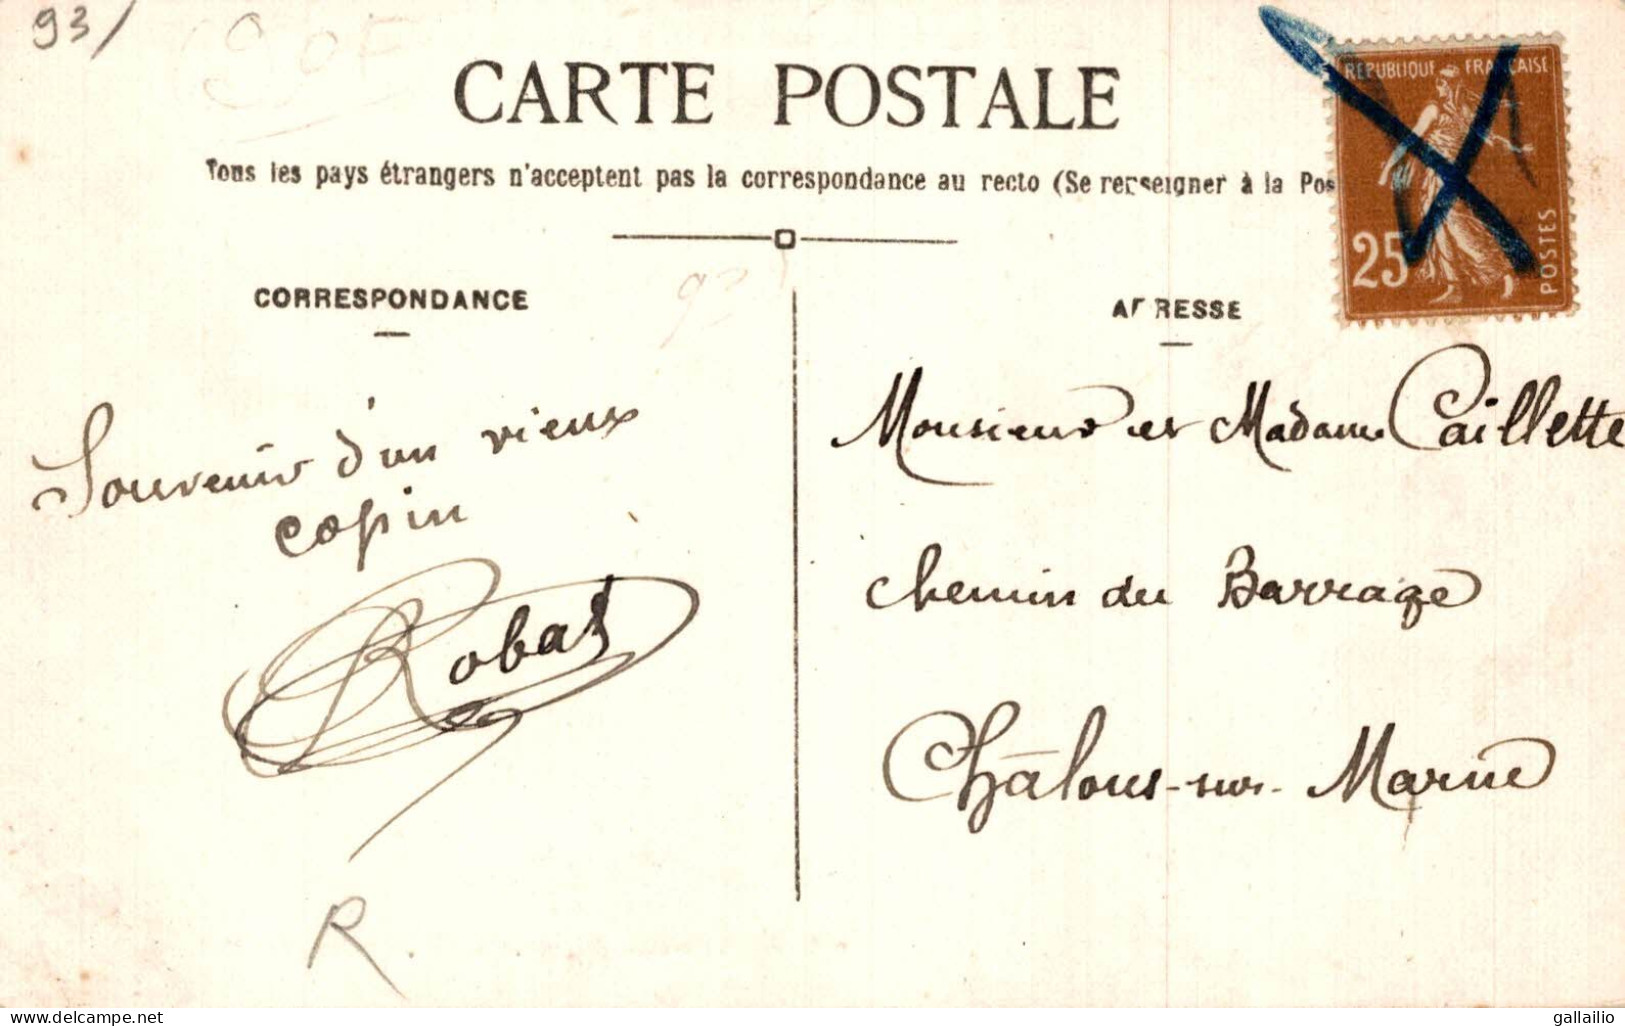 93/
CARTE POSTALE
Tous les pays étrangers n'acceptent pas la correspondance au recto (Se renseigner à la Pos
REPUBLIQUE FRANÇAISE
25
POSTES
CORRESPONDANCE
ADRESSE
Souvenir d'un vieux
copin
Robat
R.
Monsieur et Madame Caillette
chemin du Barrage
Châlons-sur-Marne
delcampe.net
gallailio